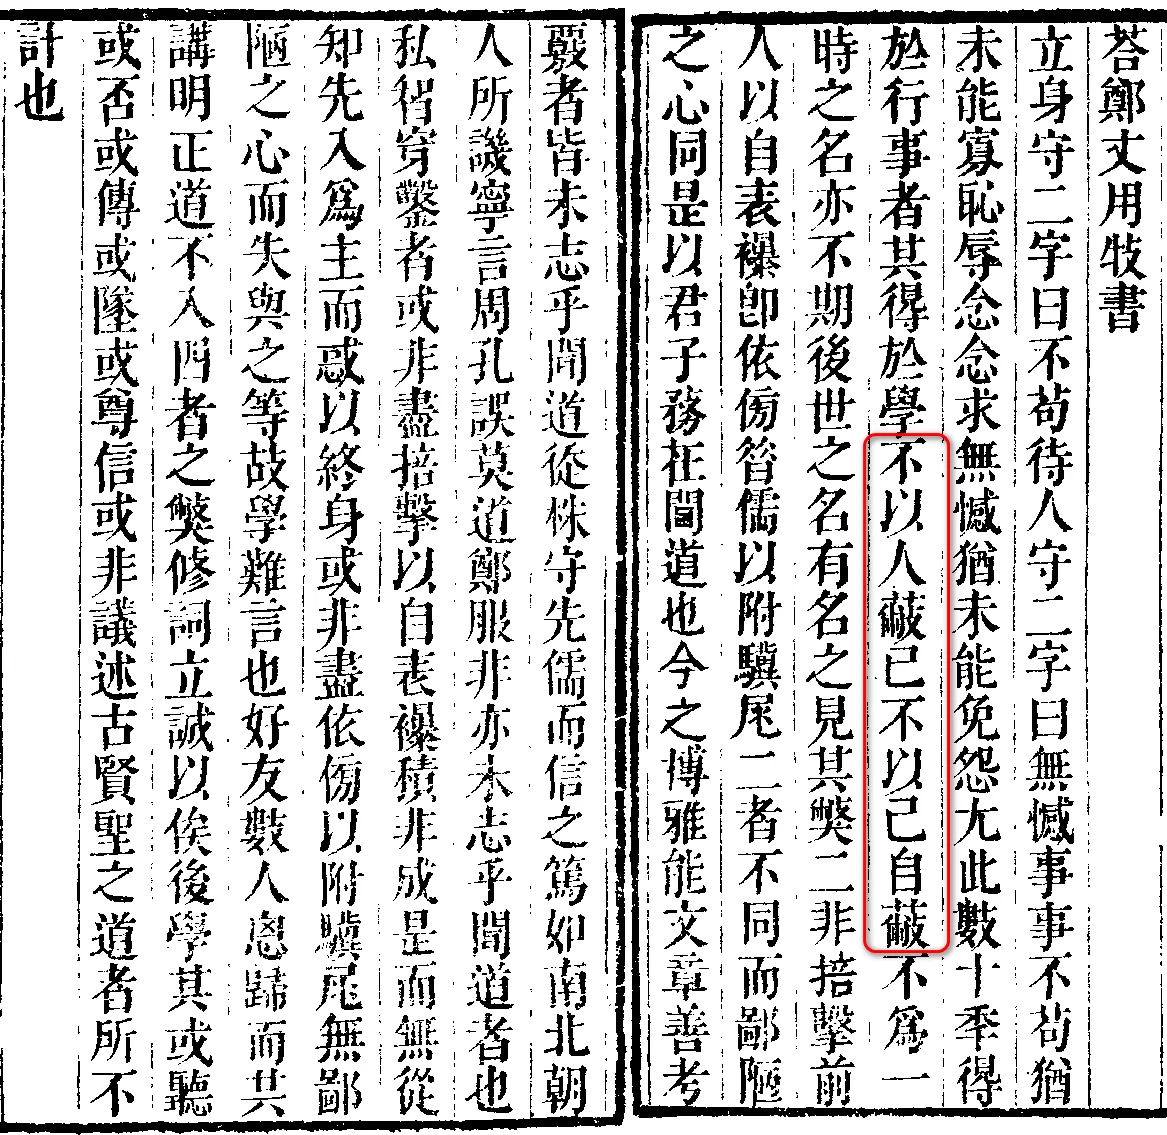 荅鄭丈用牧書
立身守二字曰不苟待人守二字曰無憾事事不苟猶
未能寡恥辱念念求無憾猶未能免怨尤此數十秊得
於行事者其得於學不以人蔽己不以己自蔽不爲一
時之名亦不期後世之名有名之見其獘二非掊擊前
人以自表襮卽依傍昝儒以附驥尾二者不同而鄙陋
之心同是以君子務在聞道也今之博雅能文章善考
覈者皆未志乎聞道從株守先儒而信之篤如南北朝
人所譏寧言周孔誤莫道鄭服非亦未志乎聞道者也
私智穿鑿者或非盡掊擊以自表襮積非成是而無從
知先入爲主而惑以終身或非盡依傍以附驥尾無鄙
陋之心而失與之等故學難言也好友數人恖歸而共
講明正道不入四者之獘修詞立誠以俟後學其或聽
或否或傳或墜或尊信或非議述古賢聖之道者所不
計也